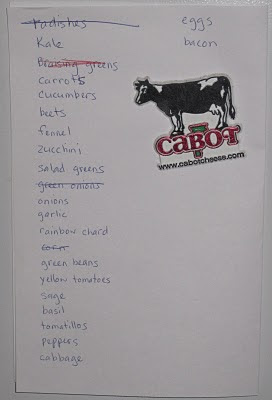 radishes
Kale
Braising greens
carrots
cucumbers
beets
fennel
zucchini
salad greens
green onions
onions
garlic
rainbow chard
corn
green beans
yellow tomatoes
sage
basil
tomatillos
peppers
cabbage
eggs
bacon
CABOT
www.cabotcheese.com